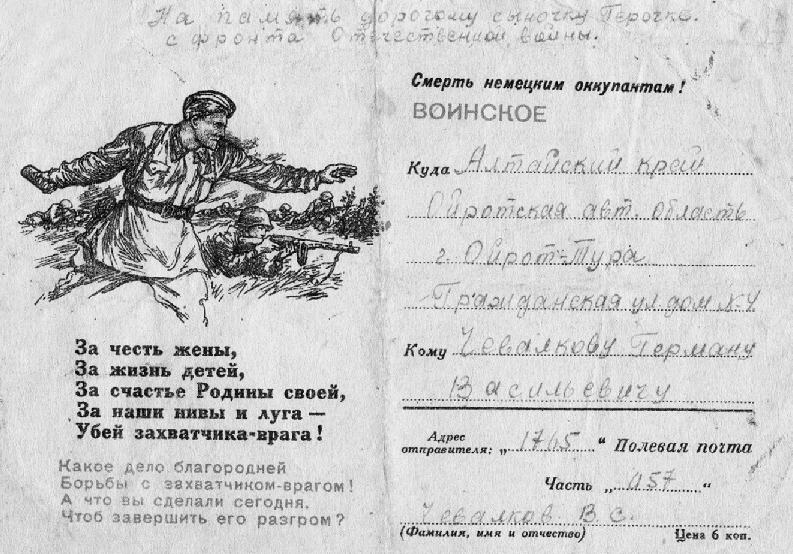 На память дорогому сыночку Герочке.
с фронта Отечественной войны.
За честь жены,
За жизнь детей,
За счастье Родины своей,
За наши нивы и луга —
Убей захватчика-врага!
Какое дело благородней
Борьбы с захватчиком-врагом!
А что вы сделали сегодня.
Чтоб завершить его разгром?
Смерть немецким оккупантам!
ВОИНСКОЕ
Куда Алтайский край
Ойротская авт. область
г. Ойрот-Тура
Гражданская ул. дом №4
Кому Чевалкову Герману
Васильевичу
Адрес отправителя: „1765“ Полевая почта
Часть „а57“
Чевалков В С.
(Фамилия, имя и отчество) Цена 6 коп.